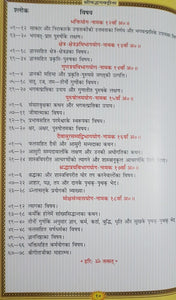 श्लोक विषय
भक्तियोग-नामक १२वाँ अ०॥
१—१२ साकार और निराकारके उपासकोंकी उत्तमताका निर्णय और भगवत्प्राप्तिके उपायका विषय।
१३—२० भगवत्-प्राप्त पुरुषोंके लक्षण।
क्षेत्र-क्षेत्रज्ञविभागयोग-नामक १३वाँ अ०॥
१—१८ ज्ञानसहित क्षेत्र-क्षेत्रज्ञका विषय।
१९—३४ ज्ञानसहित प्रकृति-पुरुषका विषय।
गुणत्रयविभागयोग-नामक १४वाँ अ०॥
१—४ ज्ञानकी महिमा और प्रकृति-पुरुषसे जगत्की उत्पत्ति।
५—१८ सत्, रज, तम—तीनों गुणोंका विषय।
१९—२७ भगवत्प्राप्तिका उपाय और गुणातीत पुरुषके लक्षण।
पुरुषोत्तमयोग-नामक १५वाँ अ०॥
१—६ संसारवृक्षका कथन और भगवत्प्राप्तिका उपाय।
७—११ जीवात्माका विषय।
१२—१५ प्रभावसहित परमेश्वरके स्वरूपका विषय।
१६—२० क्षर, अक्षर, पुरुषोत्तमका विषय।
दैवासुरसम्पद्विभागयोग-नामक १६वाँ अ०॥
१—५ फलसहित दैवी और आसुरी सम्पदाका कथन।
६—२० आसुरी सम्पदावालोंके लक्षण और उनकी अधोगतिका कथन।
२१—२४ शास्त्रविपरीत आचरणोंको त्यागने और शास्त्रानुकूल आचरणोंके लिये प्रेरणा।
श्रद्धात्रयविभागयोग-नामक १७वाँ अ०॥
१—६ श्रद्धाका और शास्त्रविपरीत घोर तप करनेवालोंका विषय।
७—२२ आहार, यज्ञ, तप और दानके पृथक्-पृथक् भेद।
२३—२८ ॐ तत्सत्के प्रयोगकी व्याख्या।
मोक्षसंन्यासयोग-नामक १८वाँ अ०॥
१—१२ त्यागका विषय।
१३—१८ कर्मोंके होनेमें सांख्यसिद्धान्तका कथन।
१९—४० तीनों गुणोंके अनुसार ज्ञान, कर्म, कर्ता, बुद्धि, धृति और सुखके पृथक्-पृथक् भेद।
४१—४८ फलसहित वर्णधर्मका विषय।
४९—५५ ज्ञाननिष्ठाका विषय।
५६—६६ भक्तिसहित कर्मयोगका विषय।
६७—७८ श्रीगीताजीका माहात्म्य।
॥ हरिः ॐ तत्सत् ॥